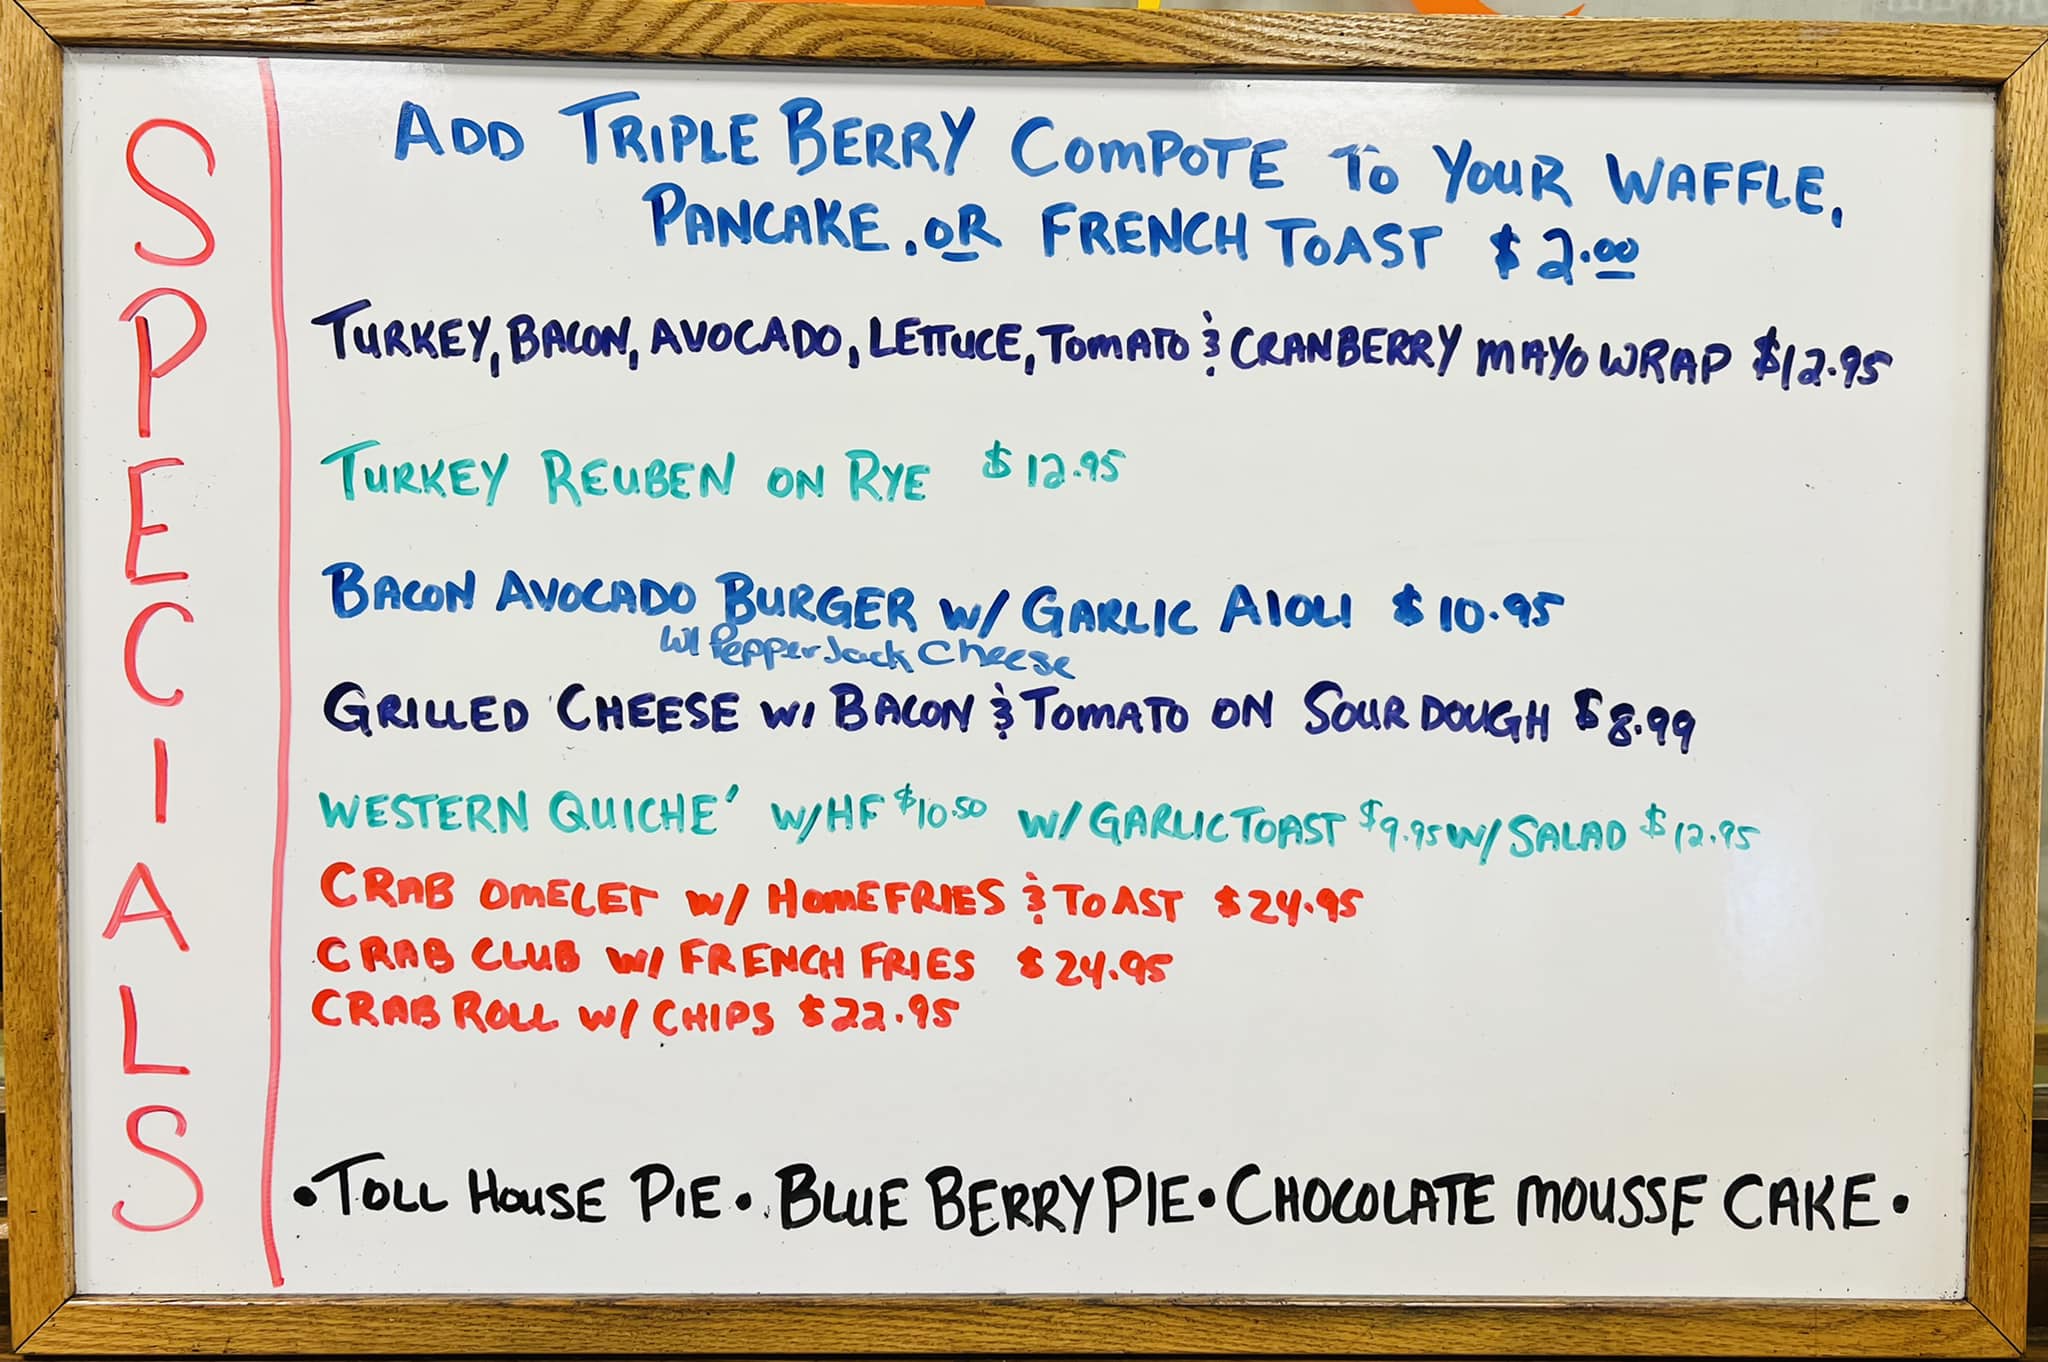 SPECIALS
ADD TRIPLE BERRY COMPOTE TO YOUR WAFFLE,
PANCAKE, OR FRENCH TOAST $2.00
TURKEY, BACON, AVOCADO, LETTUCE, TOMATO & CRANBERRY MAYO WRAP $12.95
TURKEY REUBEN ON RYE $12.95
BACON AVOCADO BURGER W/ GARLIC AIOLI $10.95
W/ Pepper Jack Cheese
GRILLED CHEESE W/ BACON & TOMATO ON SOUR DOUGH $8.99
WESTERN QUICHE' W/HF $10.50 W/ GARLIC TOAST $9.95 W/ SALAD $12.95
CRAB OMELET W/ HOMEFRIES & TOAST $24.95
CRAB CLUB W/ FRENCH FRIES $24.95
CRAB ROLL W/ CHIPS $22.95
• TOLL HOUSE PIE • BLUE BERRY PIE • CHOCOLATE MOUSSE CAKE •